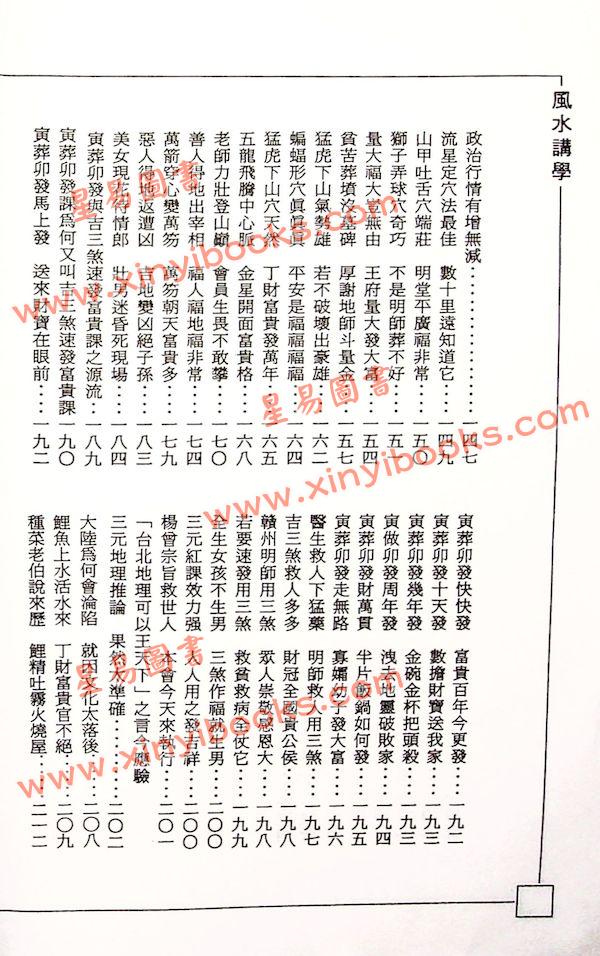 風水講學
政治行情有增無減‥‥‥‥‥‥‥‥一四七
流星定穴法最佳　數十里遠知道它‥‥一四九
山甲吐舌穴端莊　明堂平廣福非常‥‥一五〇
獅子弄球穴奇巧　不是明師葬不好‥‥一五一
量大福大豈無由　王府量大發大富‥‥一五四
貧苦葬墳沒墓碑　厚謝地師斗量金‥‥一五七
猛虎下山氣勢雄　若不破壞出豪雄‥‥一六二
蝙蝠形穴眞眞眞　平安是福福福福‥‥一六四
猛虎下山穴天然　丁財富貴發萬年‥‥一六五
五龍飛騰中心脈　金星開面富貴格‥‥一六八
老師力壯登山巔　會員生畏不敢攀‥‥一七〇
善人得地出宰相　福人福地福非常‥‥一七四
萬箭穿心變萬笏　萬笏朝天富貴多‥‥一七九
惡人得地返遭凶　吉地變凶絕子孫‥‥一八三
美女現花待情郎　壯男迷昏死現場‥‥一八四
寅葬卯發與吉三煞速發富貴課之源流‥‥一八九
寅葬卯發課爲何又叫吉三煞速發富貴課　一九〇
寅葬卯發馬上發　送來財寶在眼前‥‥一九二
寅葬卯發快快發　富貴百年今更發‥‥一九二
寅葬卯發十天發　數擔財寶送我家‥‥一九三
寅葬卯發幾年發　金碗金杯把頭殺‥‥一九三
寅做卯發周年發　洩去地靈破敗家‥‥一九四
寅葬卯發財萬貫　半片飯鍋如何發‥‥一九五
寅葬卯發走無路　寡孀幼子發大富‥‥一九六
醫生救人下猛藥　明師救人用三煞‥‥一九七
吉三煞救人多多　財冠全國賓公侯‥‥一九八
贛州明師用三煞　眾人崇敬感恩大‥‥一九八
若要速發用三煞　救貧救病全仗它‥‥一九九
全生女孩不生男　三煞作福就生男‥‥二〇〇
三元紅課效力强　人人用之發吉祥‥‥二〇〇
楊曾宗旨救世人　本會今天來執行‥‥二〇一
「台北地理可以王天下」之言今應驗
三元地理推論　果然太準確‥‥‥‥二〇二
大陸爲何會淪陷　就因文化太落後‥‥二〇八
鯉魚上水活水來　丁財富貴官不絕‥‥二〇九
種菜老伯說來歷　鯉精吐霧火燒屋‥‥二一二
星易圖書
www.xinyibooks.com
星易圖書
www.xinyibooks.com
星易圖書
www.xinyibooks.com